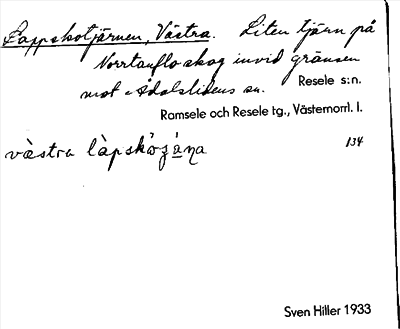 Lappskotjärnen, Västra. Liten tjärn på
Norrtanflo skog invid gränsen
mot Ådalslidens sn. Resele s:n.
Ramsele och Resele tg., Västernorrl. l.
134
västra làpskòʒána
Sven Hiller 1933